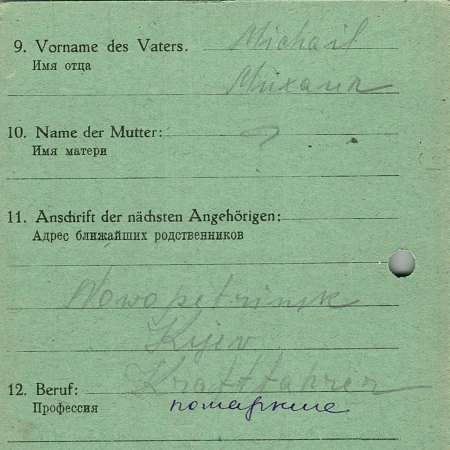 9. Vorname des Vaters. Michail
Имя отца Михаил
10. Name der Mutter:
Имя матери
11. Anschrift der nächsten Angehörigen:
Адрес ближайших родственников
Nowopetrinsk
Kijev
12. Beruf: Kraftfahrer
Профессия